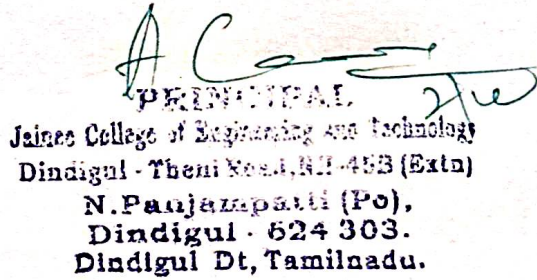 PRINCIPAL
Jainee College of Engineering and Technology
Dindigul - Theni Road, NH-45B (Extn)
N.Panjampatti (Po),
Dindigul - 624 303.
Dindigul Dt, Tamilnadu.